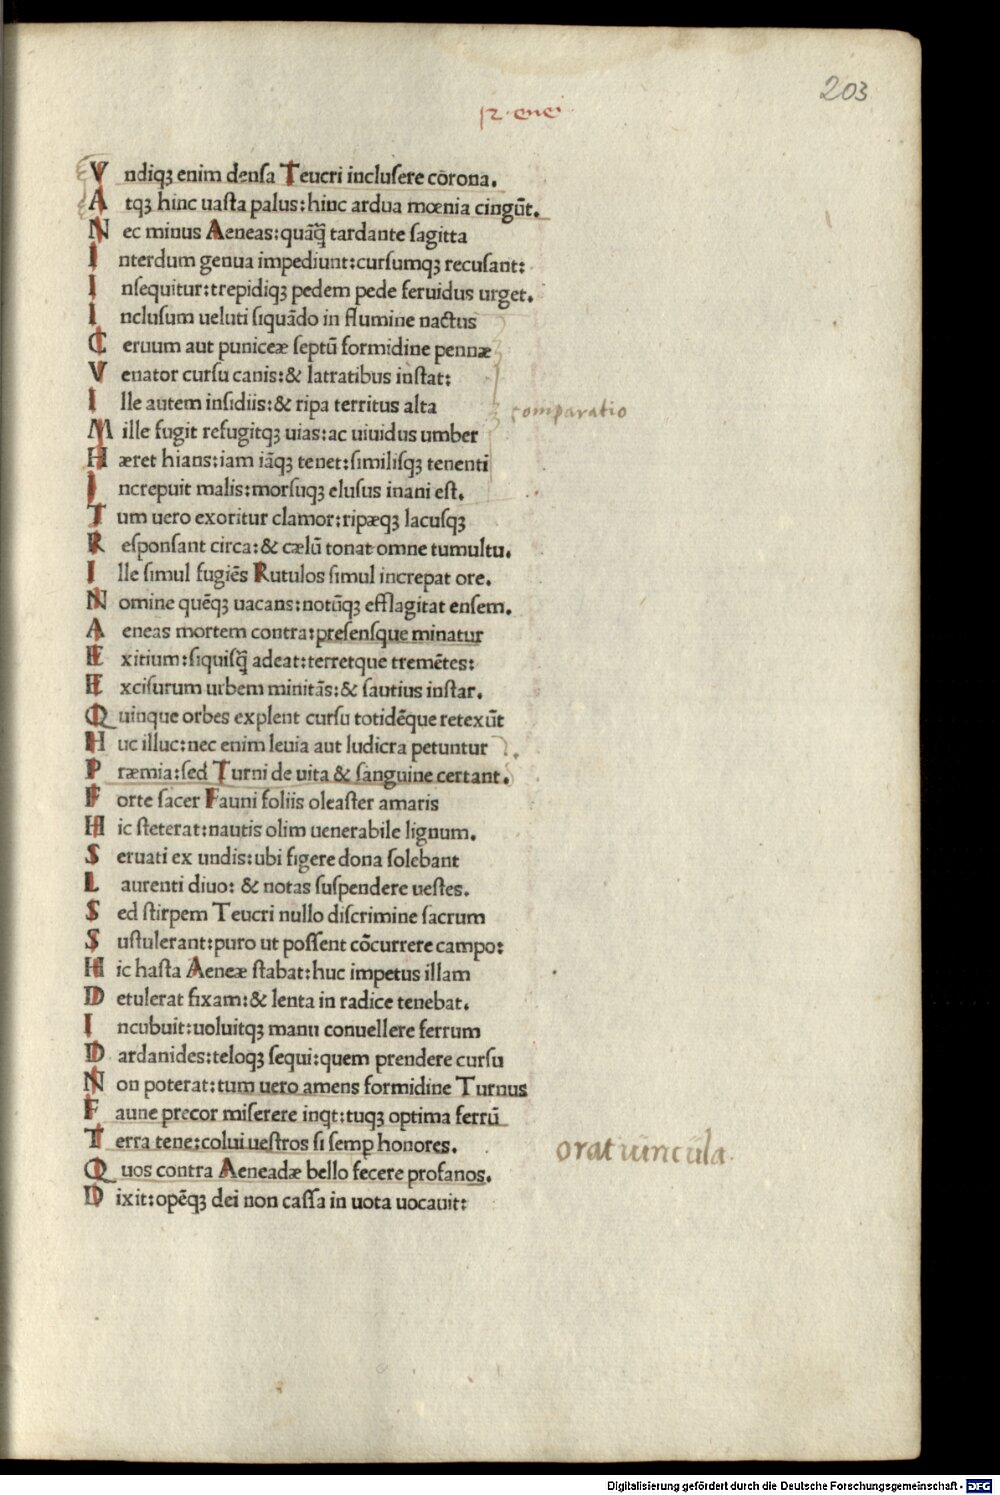 203
12 · enei
Vndiqꝫ enim densa Teucri inclusere cōrona.
Atqꝫ hinc uasta palus: hinc ardua mœnia cingūt.
Nec minus Aeneas: quāq̃ tardante sagitta
Interdum genua impediunt: cursumqꝫ recusant:
Insequitur: trepidiqꝫ pedem pede feruidus urget.
Inclusum ueluti siquādo in flumine nactus
Ceruum aut puniceæ septū formidine pennæ
Venator cursu canis: & latratibus instat:
Ille autem insidiis: & ripa territus alta
comparatio
Mille fugit refugitqꝫ uias: ac uiuidus umber
Hæret hians: iam iāqꝫ tenet: similisqꝫ tenenti
Increpuit malis: morsuqꝫ elusus inani est.
Tum uero exoritur clamor: ripæqꝫ lacusqꝫ
Responsant circa: & cælū tonat omne tumultu.
Ille simul fugiēs Rutulos simul increpat ore.
Nomine quēqꝫ uacans: notūqꝫ efflagitat ensem.
Aeneas mortem contra: presensque minatur
Exitium: siquisq̃ adeat: terretque tremētes:
Excisurum urbem minitās: & sautius instar.
Quinque orbes explent cursu totidēque retexūt
Huc illuc: nec enim leuia aut ludicra petuntur
Præmia: sed Turni de uita & sanguine certant.
Forte sacer Fauni foliis oleaster amaris
Hic steterat: nautis olim uenerabile lignum.
Seruati ex undis: ubi figere dona solebant
Laurenti diuo: & notas suspendere uestes.
Sed stirpem Teucri nullo discrimine sacrum
Sustulerant: puro ut possent cōcurrere campo:
Hic hasta Aeneæ stabat: huc impetus illam
Detulerat fixam: & lenta in radice tenebat.
Incubuit: uoluitqꝫ manu conuellere ferrum
Dardanides: teloqꝫ sequi: quem prendere cursu
Non poterat: tum uero amens formidine Turnus
Faune precor miserere inqt: tuqꝫ optima ferrū
Terra tene: colui uestros si semꝑ honores.
orat uincula.
Quos contra Aeneadæ bello fecere profanos.
Dixit: opēqꝫ dei non cassa in uota uocauit:
Digitalisierung gefördert durch die Deutsche Forschungsgemeinschaft - DFG